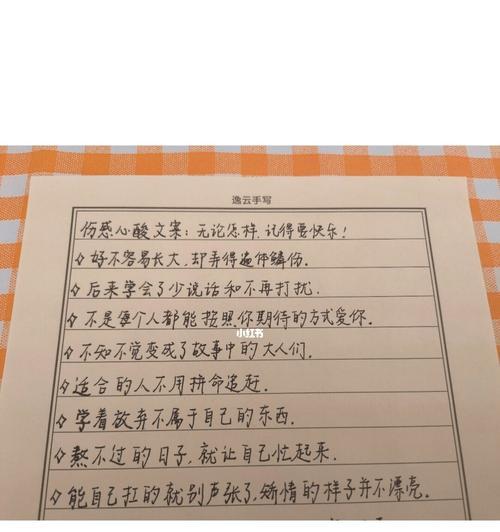 逸云手写
伤感心酸文案:无论怎样,记得要快乐!
好不容易长大,却弄得遍体鳞伤.
后来学会了少说话和不再打扰.
不是每个人都能按照你期待的方式爱你.
小红书
不知不觉变成了故事中的大人们.
适合的人不用拼命追赶.
学着放弃不属于自己的东西.
熬不过的日子,就让自己忙起来.
能自己扛的就别声张了,矫情的样子并不漂亮.